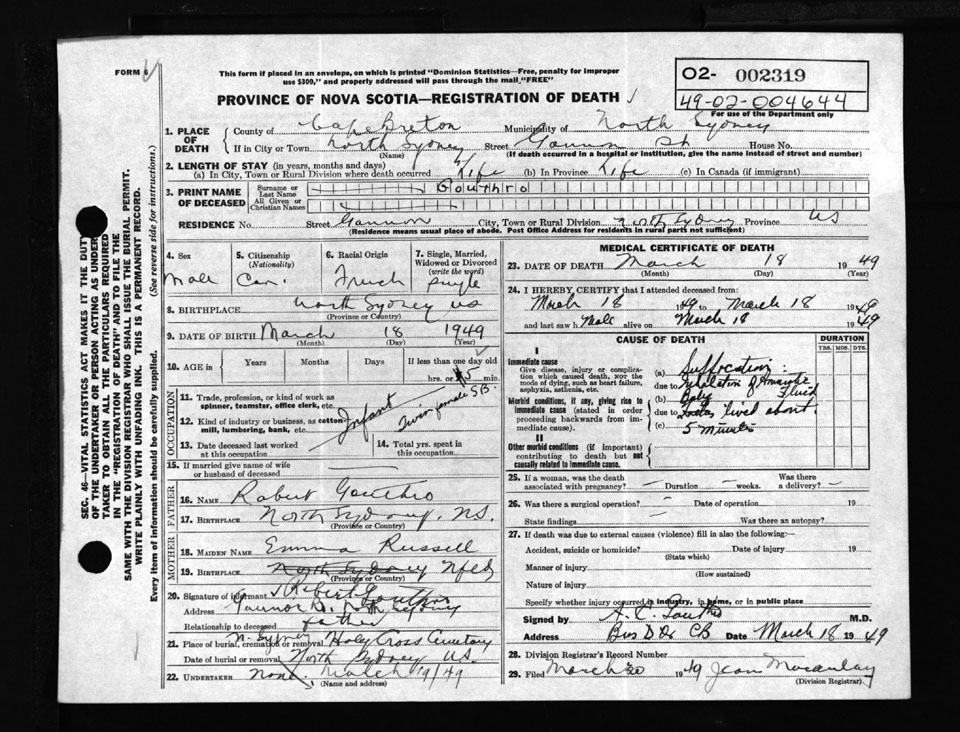 FORM 6
This form if placed in an envelope, on which is printed "Dominion Statistics—Free, penalty for improper
use $300," and properly addressed will pass through the mail "FREE"
O2- 002319
49-02-004644
For use of the Department only
PROVINCE OF NOVA SCOTIA—REGISTRATION OF DEATH
SEC. 46—VITAL STATISTICS ACT MAKES IT THE DUTY
OF THE UNDERTAKER OR PERSON ACTING AS UNDER-
TAKER TO OBTAIN ALL THE PARTICULARS REQUIRED
IN THE "REGISTRATION OF DEATH" AND TO FILE THE
SAME WITH THE DIVISION REGISTRAR WHO SHALL ISSUE THE BURIAL PERMIT.
WRITE PLAINLY WITH UNFADING INK. THIS IS A PERMANENT RECORD.
Every item of information should be carefully supplied. (See reverse side for instructions.)
1. PLACE OF DEATH County of Cape Breton Municipality of North Sydney
If in City or Town North Sydney Street Gannon St House No.
(Name) (If death occurred in a hospital or institution, give the name instead of street and number)
2. LENGTH OF STAY (in years, months and days)
(a) In City, Town or Rural Division where death occurred Life (b) In Province Life (c) In Canada (if immigrant)
3. PRINT NAME OF DECEASED Surname or Last Name Gouthro
All Given or Christian Names
RESIDENCE No. Street Gannon City, Town or Rural Division North Sydney Province NS
(Residence means usual place of abode. Post Office Address for residents in rural parts not sufficient)
4. Sex Male
5. Citizenship (Nationality) Can.
6. Racial Origin French
7. Single, Married, Widowed or Divorced (write the word) Single
8. BIRTHPLACE North Sydney NS
(Province or Country)
9. DATE OF BIRTH March 18 1949
(Month) (Day) (Year)
10. AGE in Years Months Days If less than one day old
hrs. or 5 min.
OCCUPATION
11. Trade, profession, or kind of work as
spinner, teamster, office clerk, etc.
12. Kind of industry or business, as cotton-
mill, lumbering, bank, etc. Infant
Twin female SB
13. Date deceased last worked
at this occupation
14. Total yrs. spent in
this occupation
15. If married give name of wife
or husband of deceased
FATHER
16. NAME Robert Gouthro
17. BIRTHPLACE North Sydney, NS.
(Province or Country)
MOTHER
18. MAIDEN NAME Emma Russell
19. BIRTHPLACE North Sydney Nfld
(Province or Country)
20. Signature of informant Robert Gouthro
Address Gannon St. North Sydney
Relationship to deceased father
21. Place of burial, cremation or removal N. Sydney Holy Cross Cemetery
Date of burial or removal North Sydney NS.
22. UNDERTAKER None March 19/49
(Name and address)
MEDICAL CERTIFICATE OF DEATH
23. DATE OF DEATH March 18 1949
(Month) (Day) (Year)
24. I HEREBY CERTIFY that I attended deceased from:
March 18 1949 to March 18 1949
and last saw h Male alive on March 18 1949
CAUSE OF DEATH
DURATION
YRS. MOS. DYS.
I
Immediate cause
Give disease, injury or complica-
tion which caused death, not the
mode of dying, such as heart failure,
asphyxia, asthenia, etc.
(a) Suffocation:
due to Inhalation of Amniotic
Fluid
Morbid conditions, if any, giving rise to
immediate cause (stated in order
proceeding backwards from im-
mediate cause).
(b) Baby
due to lived about
(c) 5 minutes
II
Other morbid conditions (if important)
contributing to death but not
causally related to immediate cause.
25. If a woman, was the death
associated with pregnancy? Duration weeks. Was there
a delivery?
26. Was there a surgical operation? Date of operation 19
State findings Was there an autopsy?
27. If death was due to external causes (violence) fill in also the following:—
Accident, suicide or homicide? Date of injury 19
(State which)
Manner of injury
(How sustained)
Nature of injury
Specify whether injury occurred in industry, in home, or in public place
Signed by M.D.
Address Date March 18 1949
28. Division Registrar's Record Number
29. Filed March 20 1949 Jean Macaulay
(Division Registrar)